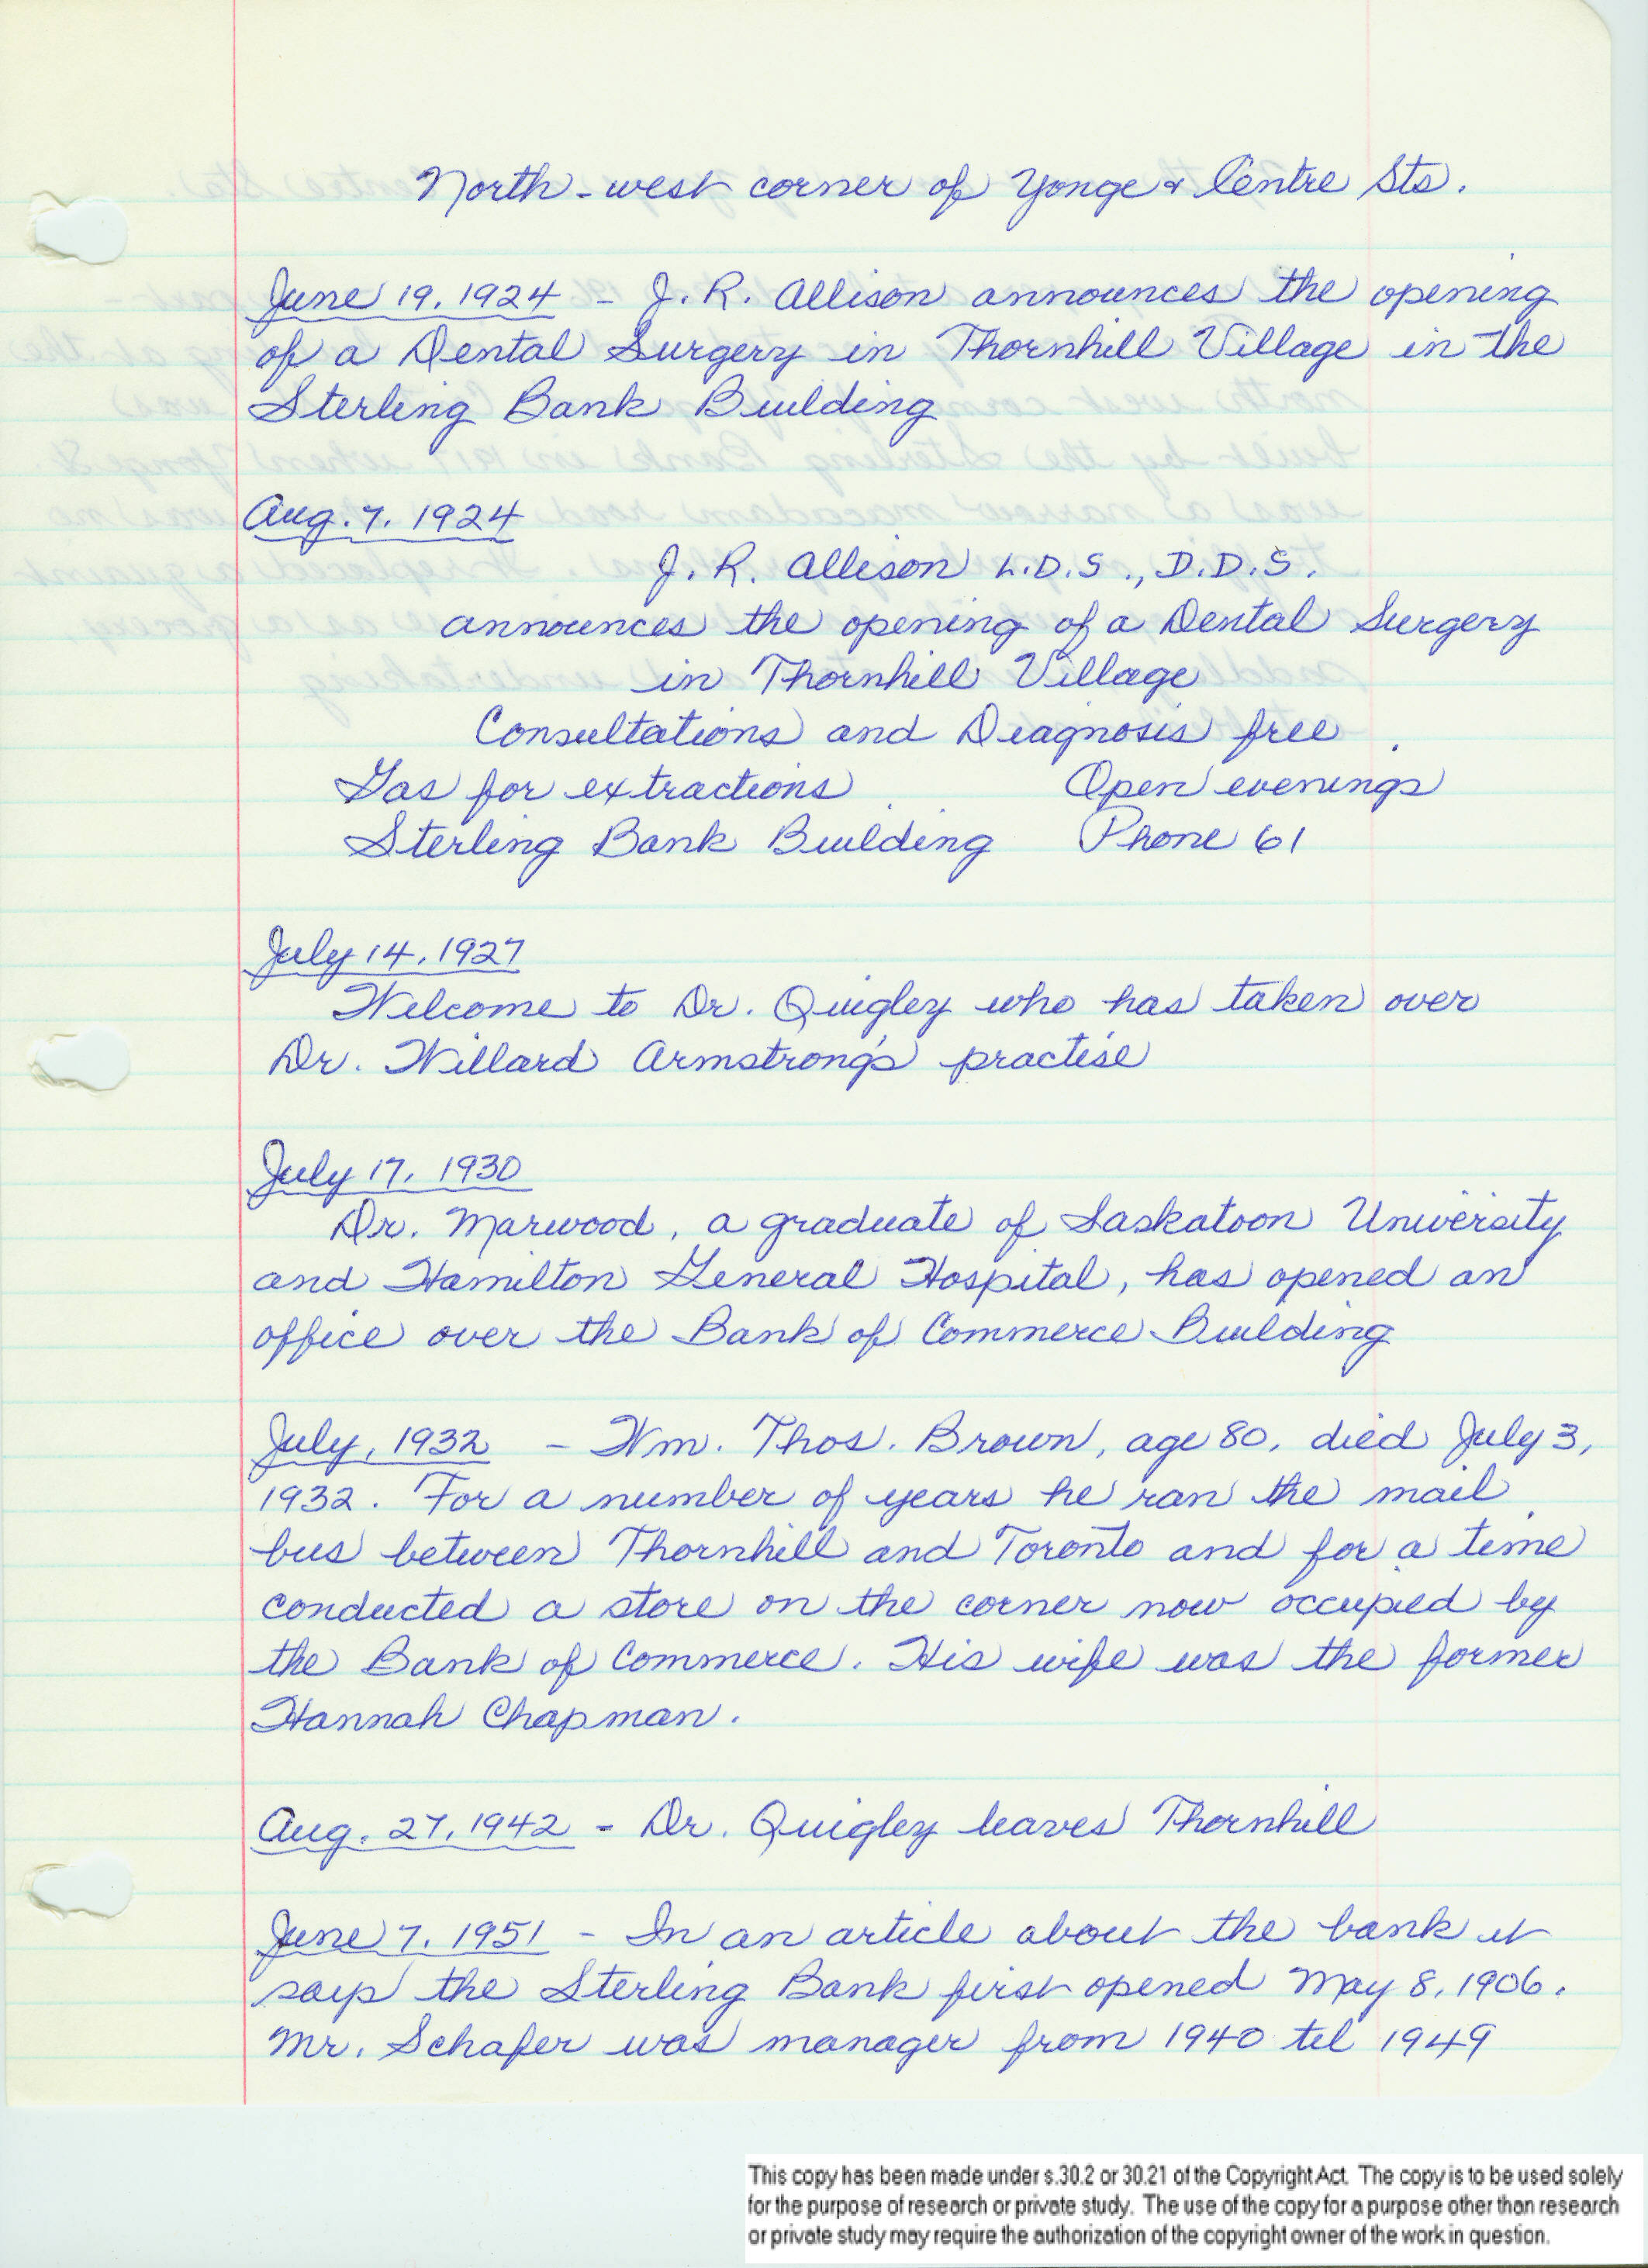 North-west corner of Yonge & Centre Sts.
June 19, 1924 - J. R. Allison announces the opening
of a Dental Surgery in Thornhill Village in the
Sterling Bank Building
Aug. 7, 1924
J. R. Allison L.D.S., D.D.S.
announces the opening of a Dental Surgery
in Thornhill Village
Consultations and Diagnosis free.
Gas for extractions Open evenings
Sterling Bank Building Phone 61
July 14, 1927
Welcome to Dr. Quigley who has taken over
Dr. Willard Armstrong's practise
July 17, 1930
Dr. Marwood, a graduate of Saskatoon University
and Hamilton General Hospital, has opened an
office over the Bank of Commerce Building
July, 1932 - Wm. Thos. Brown, age 80, died July 3,
1932. For a number of years he ran the mail
bus between Thornhill and Toronto and for a time
conducted a store on the corner now occupied by
the Bank of Commerce. His wife was the former
Hannah Chapman.
Aug. 27, 1942 - Dr. Quigley leaves Thornhill
June 7, 1951 - In an article about the bank it
says the Sterling Bank first opened May 8, 1906.
Mr. Schafer was manager from 1940 til 1949
This copy has been made under s.30.2 or 30.21 of the Copyright Act. The copy is to be used solely
for the purpose of research or private study. The use of the copy for a purpose other than research
or private study may require the authorization of the copyright owner of the work in question.